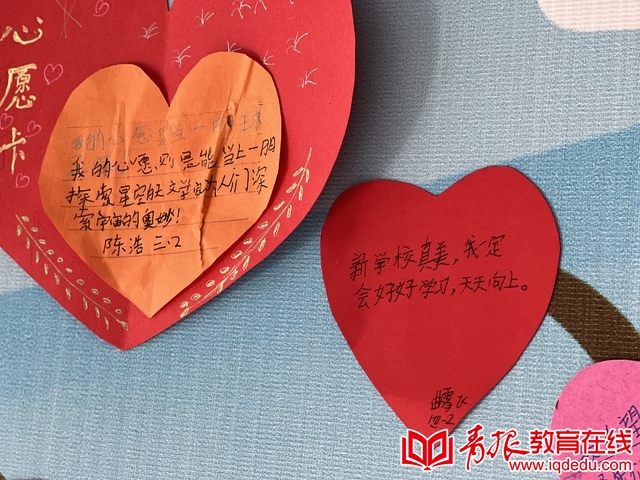 心愿卡
我的心愿则是能当上一明
探索星空的天文学家为人们探
索宇宙的奥妙!
陈浩 三.2
新学校真美,我一定
会好好学习,天天向上。
四-2
青报教育在线
www.iqdedu.com